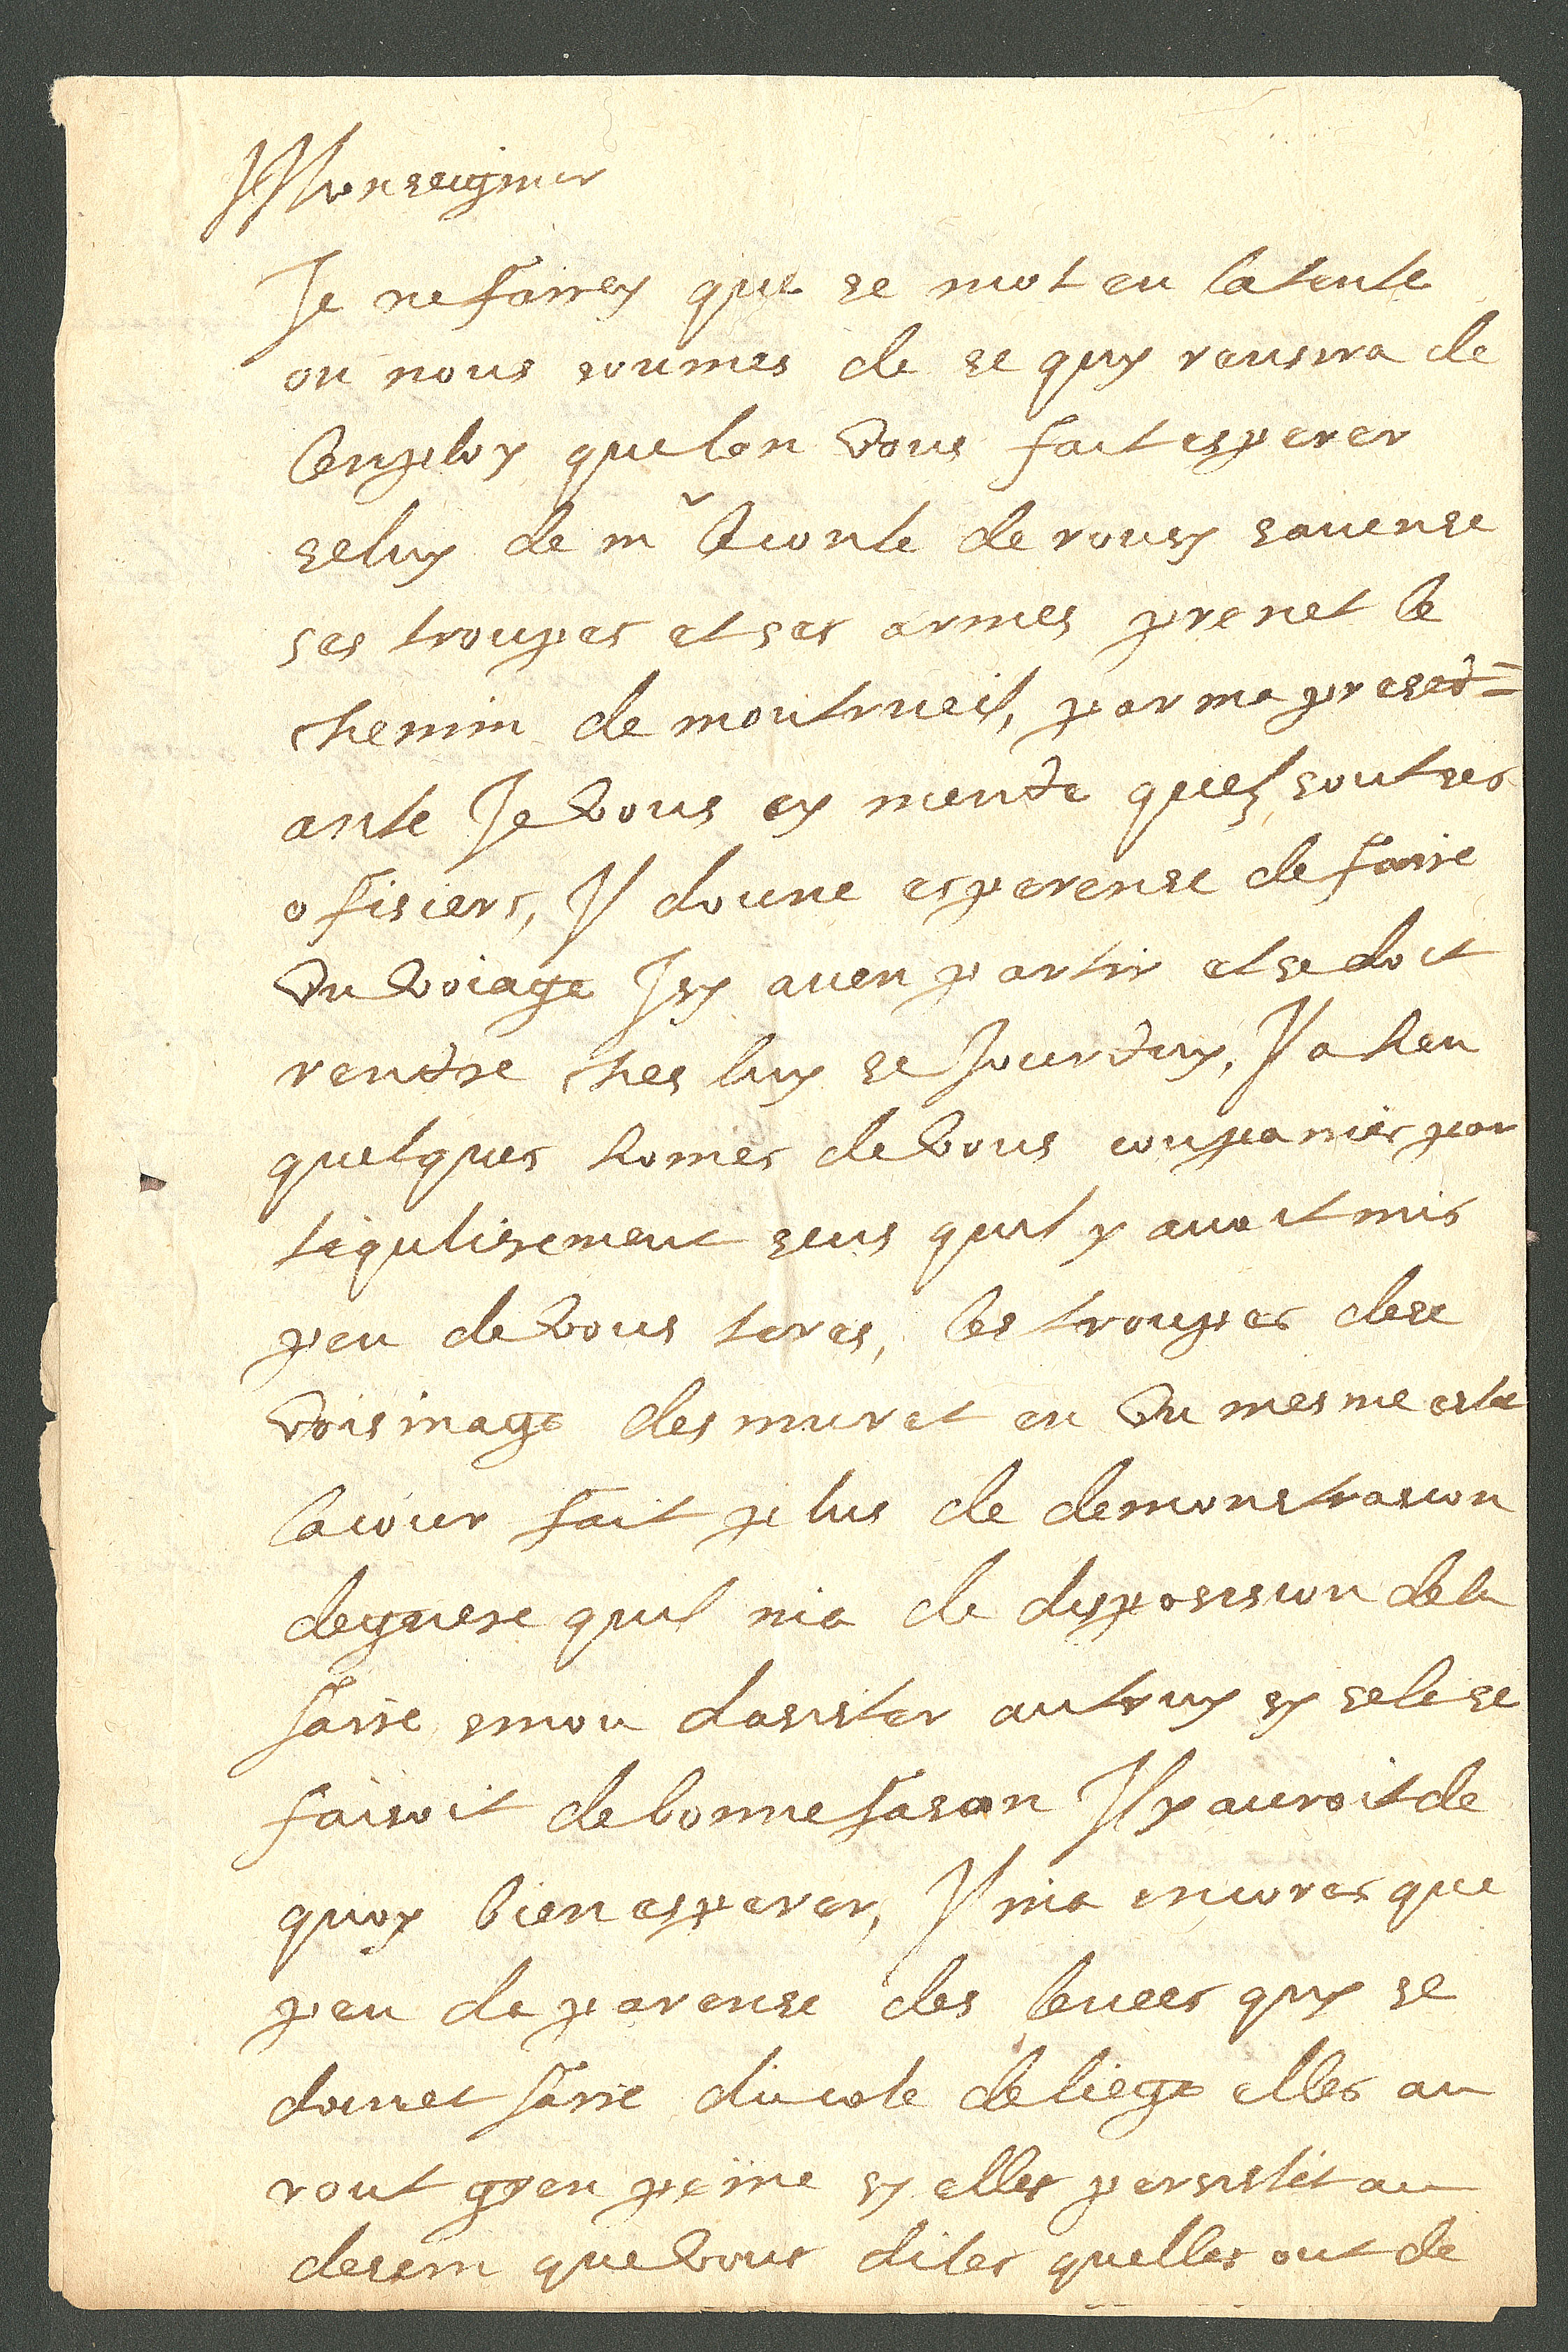 Monseigneur
Je ne fairey que se mot en latente
ou nous soumes de se quy reusira de
lenploy que lon vous fait esperer
seluy de mr le conte de rousy savense
ses troupes et ses armes prenet le
chemin de montrueil, par ma presed=
ante Je vous ey mende quels sont ses
ofisiers, Il doune esperense de faire
du voiage Isy aven partir et se doit
rendre ches luy se Jourduy, Il a heu
quelques homes de vous conpanies par
tiqulirement seus quil y avoit mis
peu de vous teres, les troupes de se
voisinage desmuret en du mesme este
la cour fait plus de demonstrasion
de guere quil nia de disposision de la
faire sinon dasister autruy sy sela se
faisoit de bonne fason Il y auroit de
quoy bien esperer, Il nia encores que
peu daparense des levees quy se
doivet faire du cote de liege elles au
ront gren peine sy elles persistet au
desein que vous dites quelles ont de